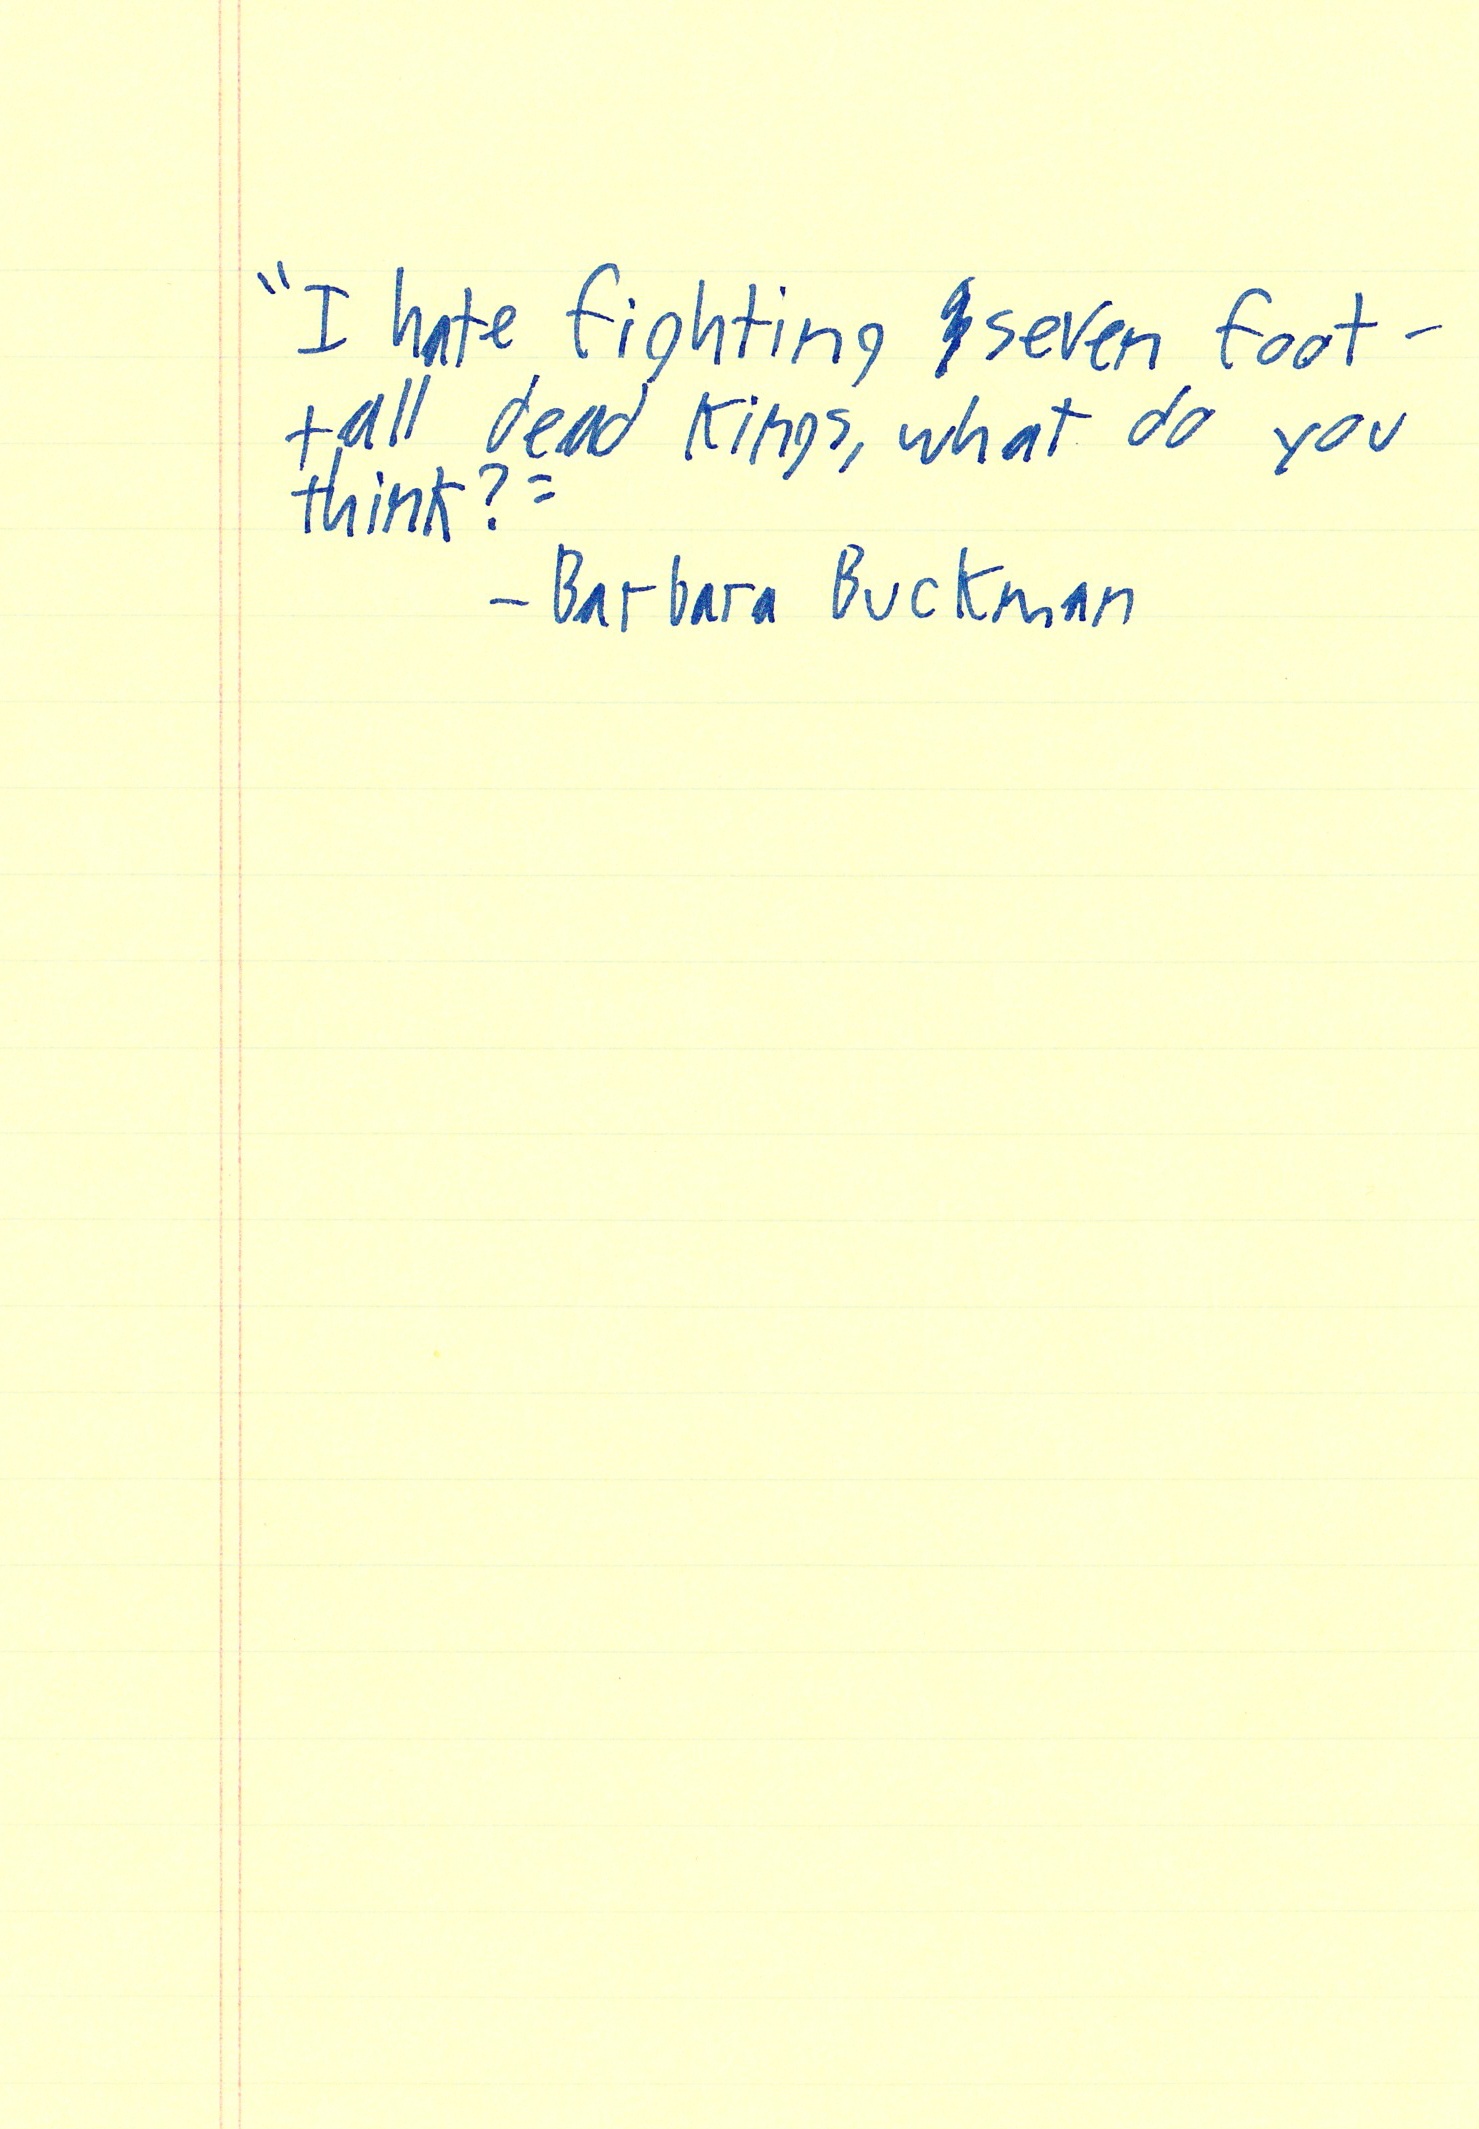 "I hate fighting seven foot-
tall dead kings, what do you
think?"
- Barbara Buckman